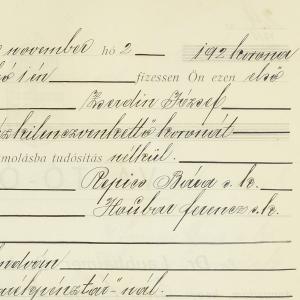 november hó 2 192 korona
1 én fizessen Ön ezen első
Zserdin József
kilenczvenkettő koronát
molásba tudósítás nélkül.
Repics Bára s. k.
Houbar ferencz s. k.
pénztár"-nál.